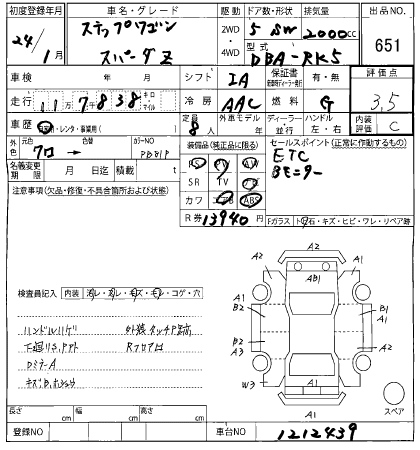 初度登録年月 車名・グレード 駆動 ドア数・形状 排気量 出品NO.
24/1月 ステップワゴン 2WD 5 SW 2000cc 651
スパーダZ 4WD 型式 DBA-RK5
車検 年 月 シフト IA 保証書 有・無 評価点
走行 11万7千838 キロ マイル 冷房 AAC 燃料 G 3.5
車歴 自家用・レンタ・事業用( ) 定員 8人 外車モデル 年 ディーラー 並行 ハンドル 左・右 内装評価 C
外色 元色 クロ 色替 カラーNO PB81P 装備品(純正品に限る) セールスポイント(正常に作動するもの)
名義変更期限 月 日迄 積載 t PS PW ETC
SR TV ナビ Bモニター
注意事項(欠品・修復・不具合箇所および状態) カワ エアB ABS
R券 13940円 Fガラス トビ石・キズ・ヒビ・ワレ・リペア跡
A2
A2 A1
AB1
検査員記入 内装 汚レ・スレ・キズ・モケ・コゲ・穴
A1 B2 B1 A1
ハンドルハゲ 外装タッチP跡
下廻りサビ RフロアO
B2 A3 A2
DミラーA
W3 A1
A1
A1 スペア
長さ cm 幅 cm 高さ cm
登録NO 車台NO 1212439